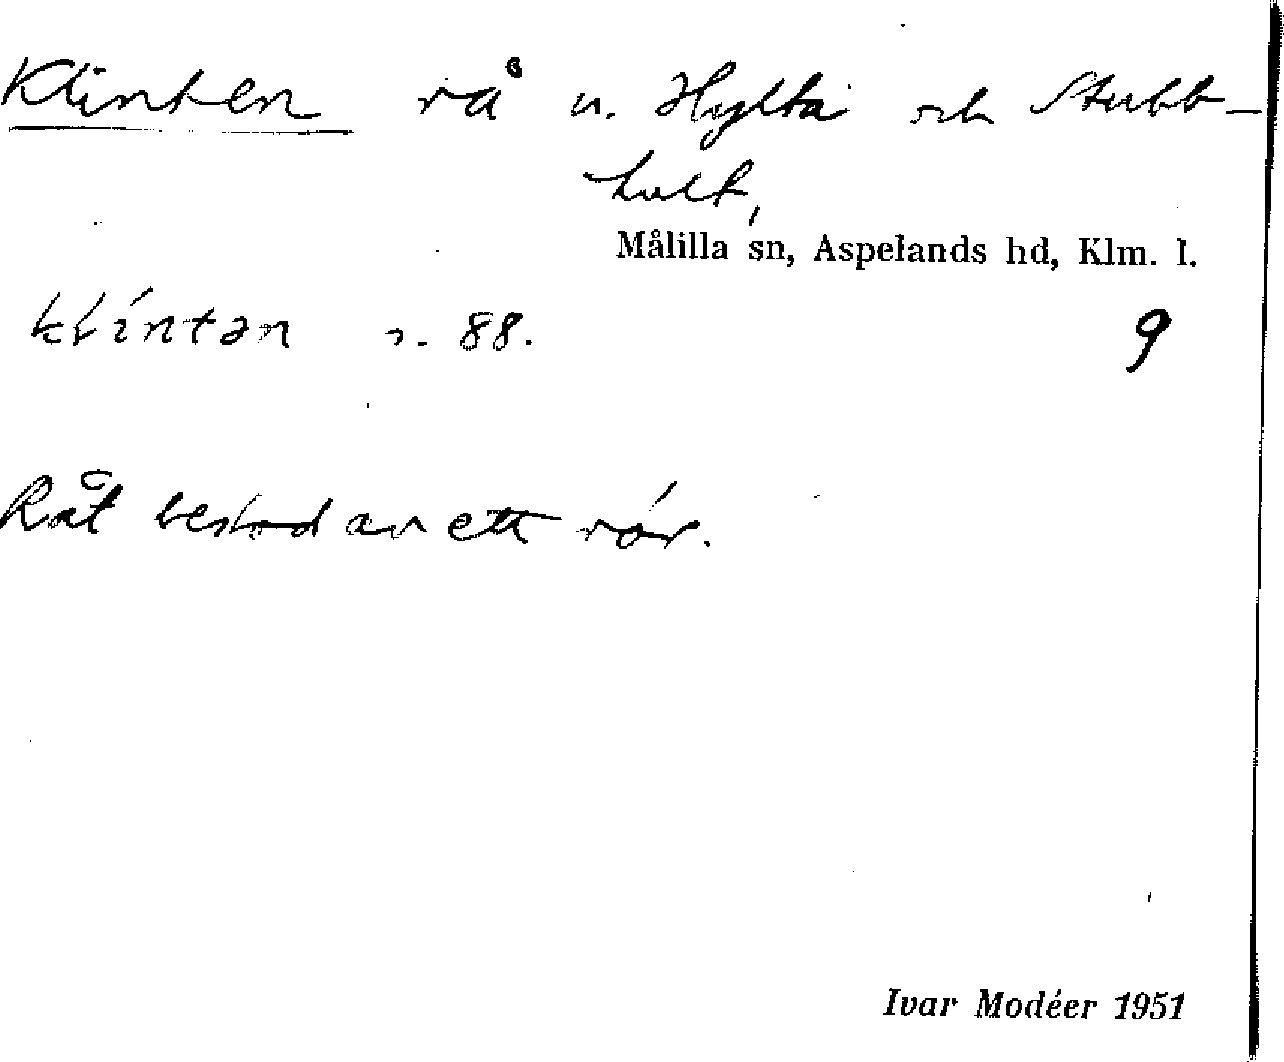 Klinten rå u. Hylta och Stubb-
hult,
Målilla sn, Aspelands hd, Klm. l.
klíntən s. 88.
9
Råt bestod av ett rör.
Ivar Modéer 1951